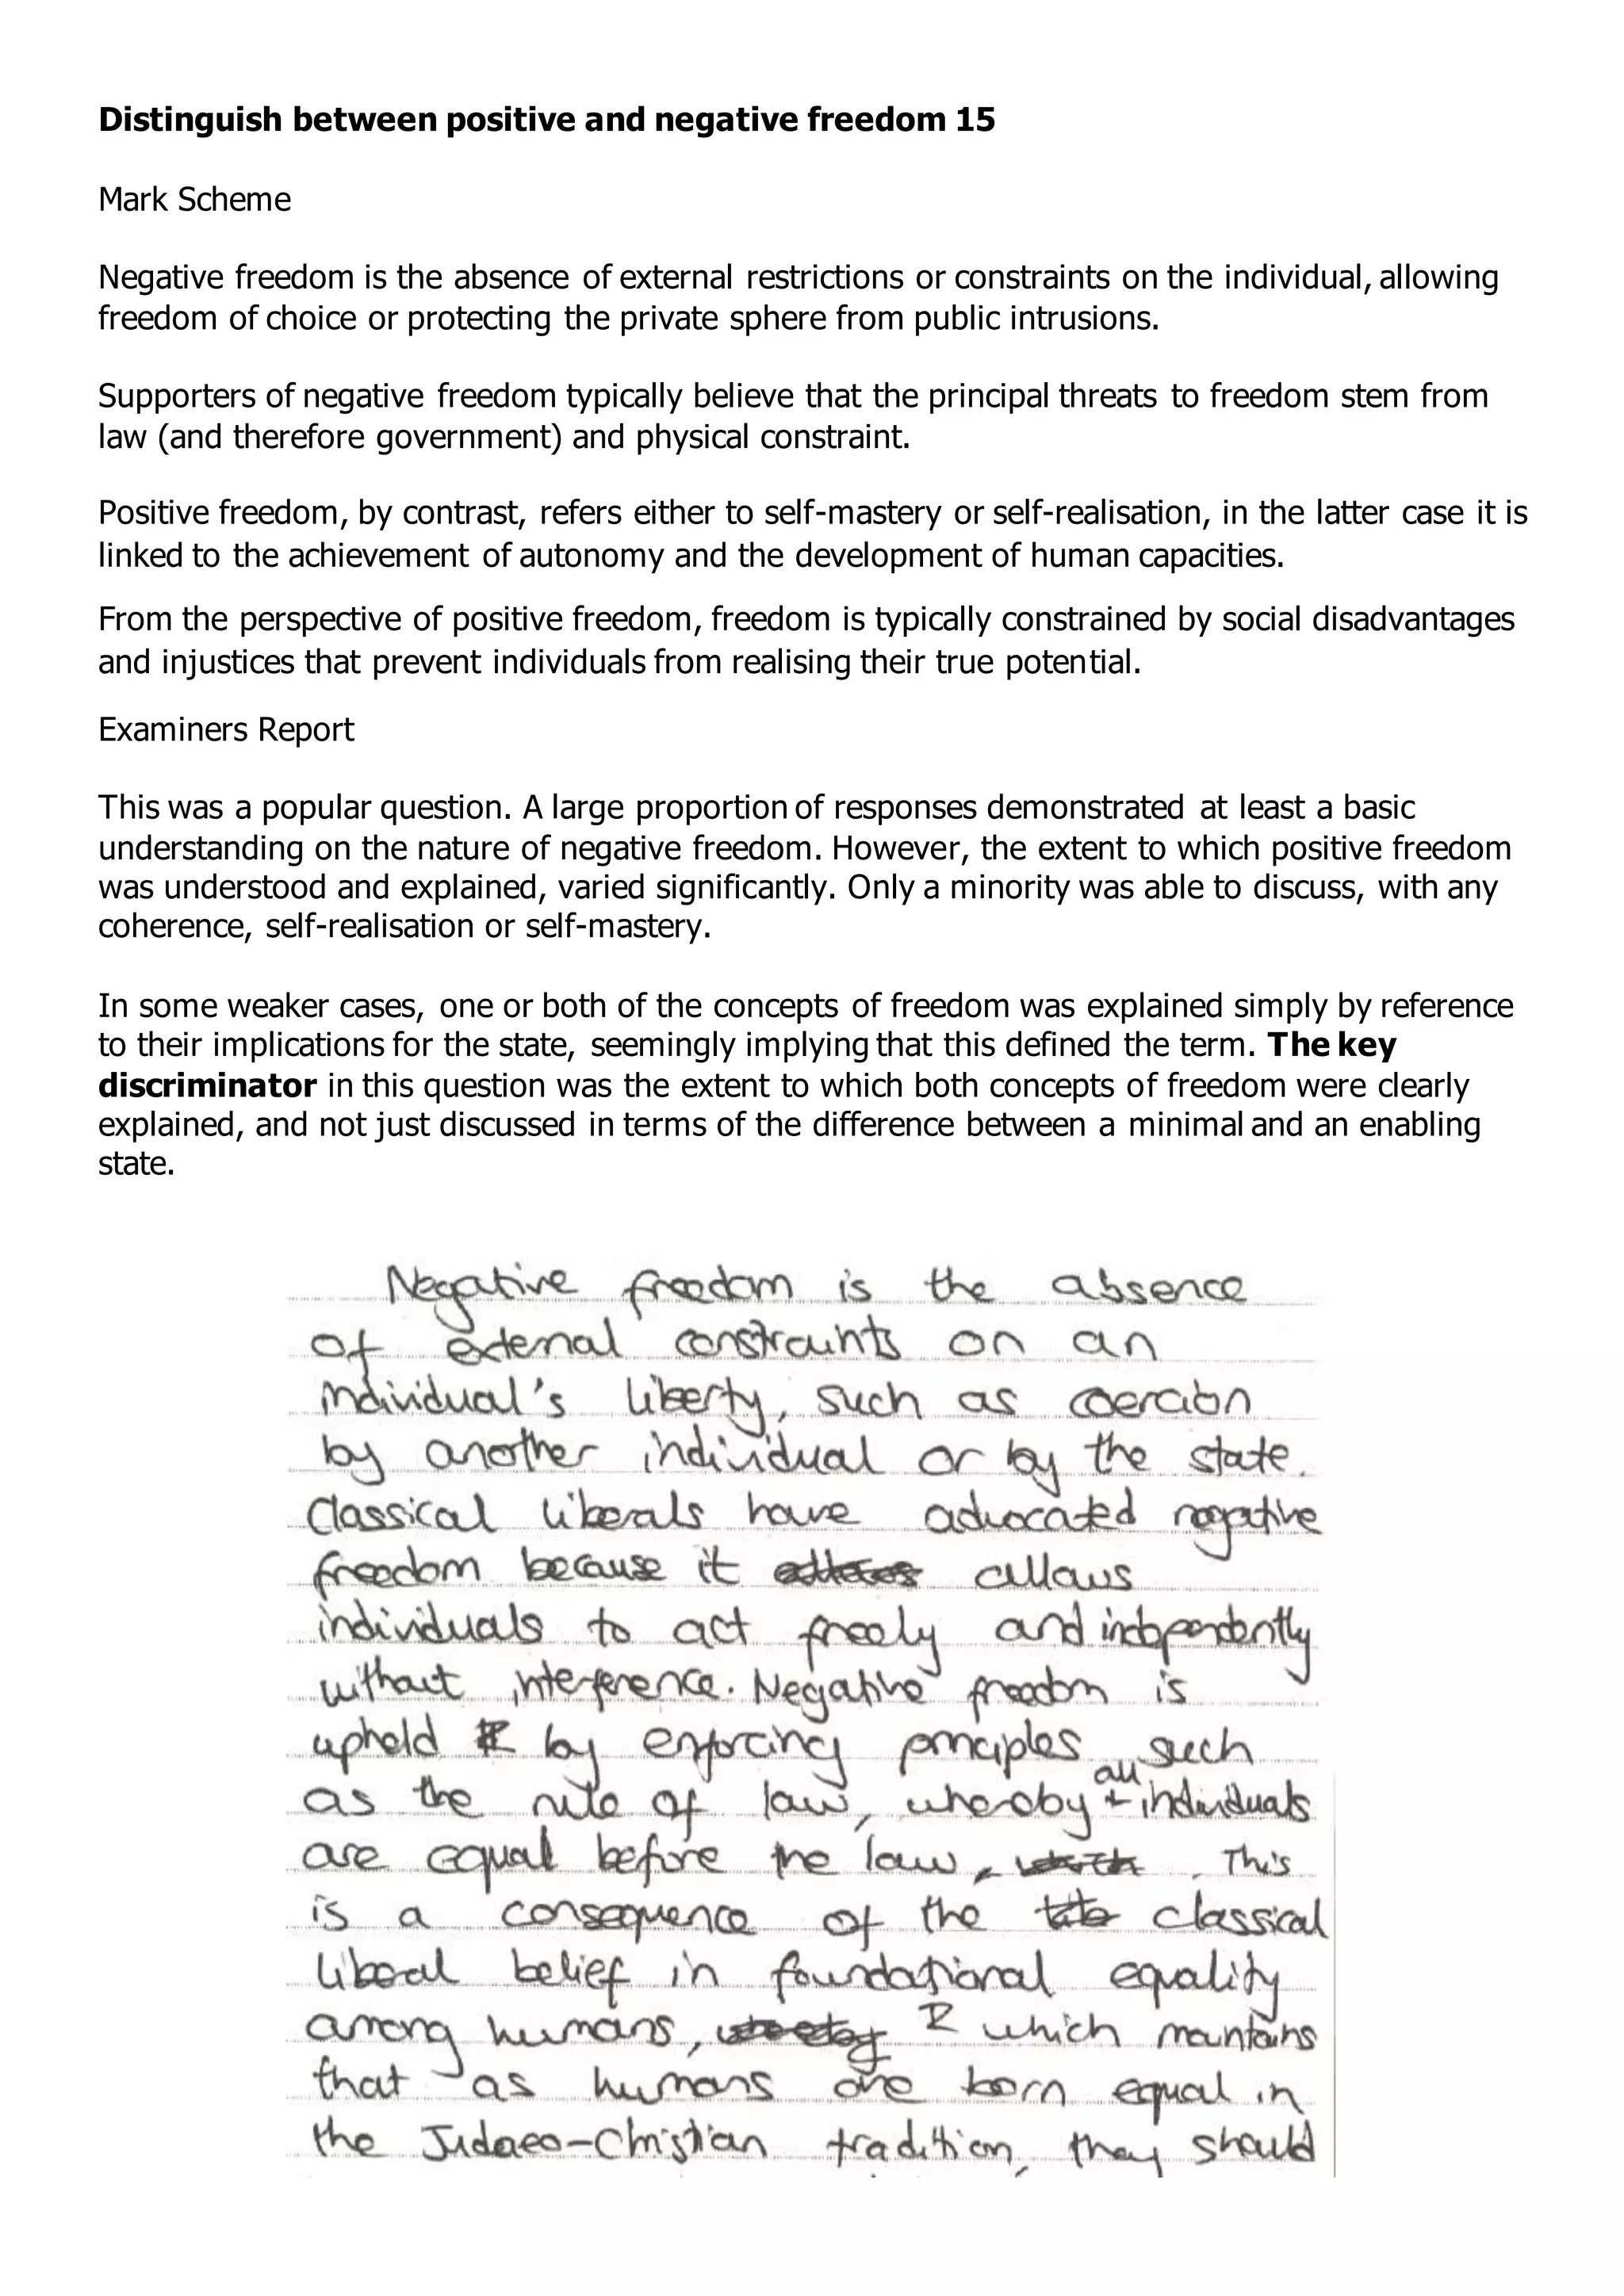 Distinguish between positive and negative freedom 15
Mark Scheme
Negative freedom is the absence of external restrictions or constraints on the individual, allowing
freedom of choice or protecting the private sphere from public intrusions.
Supporters of negative freedom typically believe that the principal threats to freedom stem from
law (and therefore government) and physical constraint.
Positive freedom, by contrast, refers either to self-mastery or self-realisation, in the latter case it is
linked to the achievement of autonomy and the development of human capacities.
From the perspective of positive freedom, freedom is typically constrained by social disadvantages
and injustices that prevent individuals from realising their true potential.
Examiners Report
This was a popular question. A large proportion of responses demonstrated at least a basic
understanding on the nature of negative freedom. However, the extent to which positive freedom
was understood and explained, varied significantly. Only a minority was able to discuss, with any
coherence, self-realisation or self-mastery.
In some weaker cases, one or both of the concepts of freedom was explained simply by reference
to their implications for the state, seemingly implying that this defined the term. The key
discriminator in this question was the extent to which both concepts of freedom were clearly
explained, and not just discussed in terms of the difference between a minimal and an enabling
state.
Negative freedom is the absence
of external constraints on an
individual's liberty, such as coercion
by another individual or by the state.
Classical liberals have advocated negative
freedom because it allows
individuals to act freely and independently
without interference. Negative freedom is
upheld by enforcing principles such
as the rule of law, whereby all individuals
are equal before the law. This
is a consequence of the classical
liberal belief in foundational equality
among humans, which maintains
that as humans are born equal in
the Judaeo-Christian tradition, they should